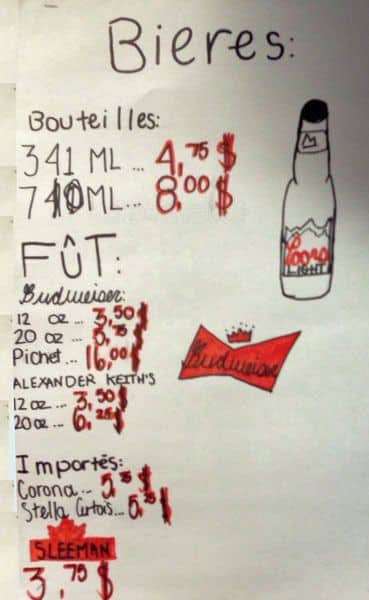 Bieres:
Bouteilles:
341 ML... 4,75 $
710ML... 8,00 $
FÛT:
Budweiser:
12 oz... 3,50 $
20 oz... 5,75
Pichet... 16,00 $
ALEXANDER KEITH'S
12 oz ... 3,50 $
20 oz ... 6,25 $
Importés:
Corona... 5,75 $
Stella Artois... 5,75 $
SLEEMAN
3,75 $
Coors
LIGHT
Budweiser